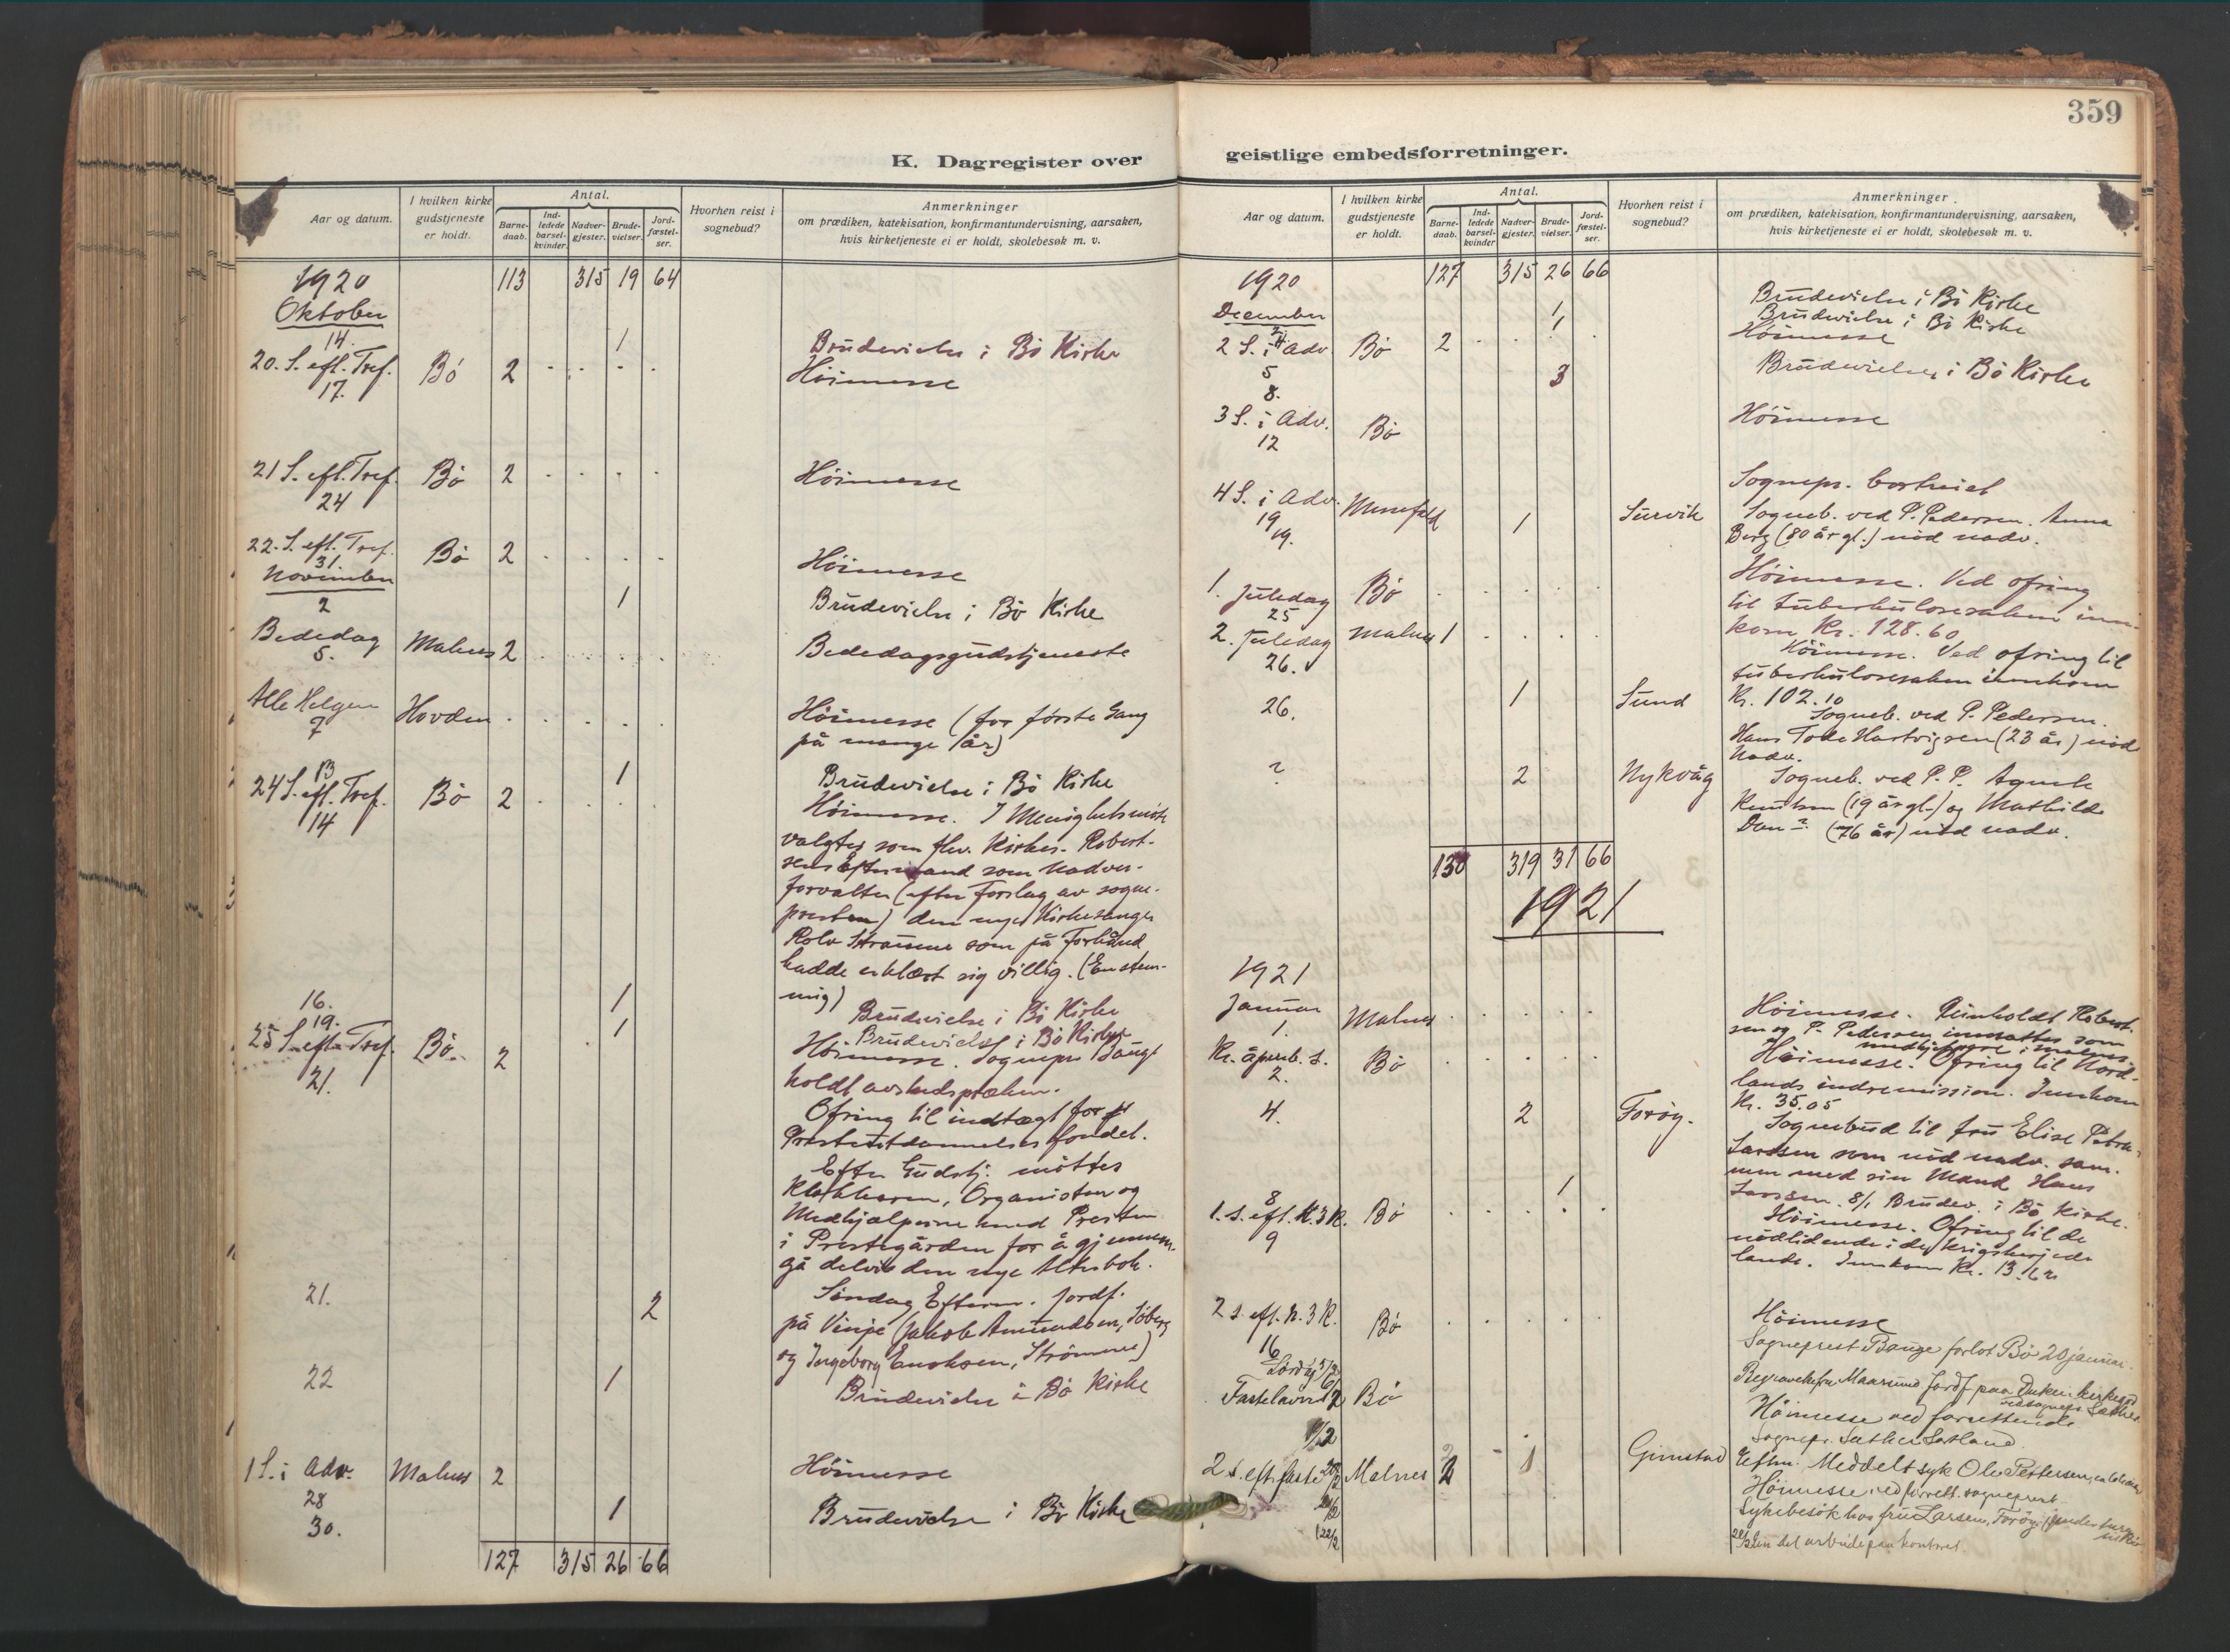 359
K. Dagregister over
geistlige embedsforretninger.
Aar og datum.
I hvilken kirke gudstjeneste er holdt.
Antal.
Barne-daab.
Ind-ledede barsel-kvinder.
Nadver-gjester.
Brude-vielser.
Jord-fæstel-ser.
Hvorhen reist i sognebud?
Anmerkninger
om prædiken, katekisation, konfirmantundervisning, aarsaken,
hvis kirketjeneste ei er holdt, skolebesøk m. v.
1920 113 315 19 64
Oktober
14. 1 Brudevielse i Bø Kirke
20. S. eft. Tref. Bø 2 Höimesse
17.
21 S. eft. Tref. Bø 2 Höimesse
24
22. S. eft. Tref. Bø 2 Höimesse
31.
November
2 1 Brudevielse i Bø Kirke
Bededag Malnes 2 Bededagsgudstjeneste
5.
Alle Helgen Hovden Höimesse (for første Gang
7 på mange år)
13 1 Brudevielse i Bø Kirke
24 S. eft. Tref. Bø 2 Höimesse. I Menighetsmöte
14
valgtes som fhv. Kirkes. Robert-
sens Eftermand som Nadver-
forvalter (efter Forslag av sogne-
presten) den nye Kirkesanger
Rolv Straume som på Forhånd
hadde erklært sig villig. (Enstem-
mig)
16. 1 Brudevielse i Bø Kirke
19. 1 Brudevielse i Bø Kirke
25 S. eft. Tref. Bø. 2 Höimesse. Sognepr. Bauge
21. holdt avskedspræken.
Ofring til indtægt for
Prestutdannelsesfondet.
Efter Gudstj. möttes
Klokkeren, Organisten og
Medhjælperne hmed Presten
i Prestegården for å gjennem-
gå delvis den nye Alterbok.
21. 2 Söndag Efterm. Jordf.
på Vinje (Jakob Amundsen, Söberg
og Ingeborg Enoksen, Strömmes)
22 1 Brudevielse i Bø Kirke
1 S. i Adv. Malnes 2 Höimesse
28
30. 1 Brudevielse i Bø Kirke
127 315 26 66
Aar og datum.
I hvilken kirke gudstjeneste er holdt.
Antal.
Barne-daab.
Ind-ledede barsel-kvinder
Nadver-gjester.
Brude-vielser.
Jord-fæstel-ser.
Hvorhen reist i sognebud?
Anmerkninger.
om prædiken, katekisation, konfirmantundervisning, aarsaken,
hvis kirketjeneste ei er holdt, skolebesøk m. v.
1920 127 315 26 66
December 1 Brudevielse i Bø Kirke
1 Brudevielse i Bø Kirke
2 S. i Adv. Bø 2 Höimesse
5
8. 3 Brudevielser i Bø Kirke
3 S. i Adv. Bø Höimesse
12
4 S. i Adv. Messefald Sognepr. bortreist
19
19. 1 Survik Sogneb. ved P. Pedersen. Anna
Berg (80 år gl.) nöd nadv.
1. Juledag Bø Höimesse. Ved ofring
25 til tuberkulosesaken inn-
kom Kr. 128.60
2. Juledag Malnes 1 Höimesse. Ved ofring til
26. tuberkulosesaken innkom
Kr. 102.10
26. 1 Sund Sogneb. ved P. Pedersen.
Hans Tode Hartvigsen (23 år) nöd
Nadv.
? 2 Nykvåg Sogneb. ved P. P. Agnete
Knutsen (19 år gl.) og Mathilde
Dan ? (76 år) nöd nadv.
130 319 31 66
1921
1921
Januar Malnes Höimesse. Reinholdt Robert-
1. sen og P. Pedersen innsattes som
medhjelpere i Malnes.
Kr. åpenb. s. Bø Höimesse. Ofring til Nord-
2. lands indremission. Innkom
Kr. 35.05
4. 2 Forøy. Sognebud til fru Elise Petra
Larssen som nöd nadv. sam-
men med sin Mand Hans
Larssen.
8 1 8/1 Brudev. i Bø Kirke.
1. s. eft. H. 3 K. Bø Höimesse. Ofring til de
9 nödlidende i de krigsherjede
lande. Innkom Kr. 13.
2 s. eft. H. 3 K. Bø Höimesse
16 Sogneprest Bauge forlot Bø 20 januar.
Fastelavn Bø Höimesse ved forrettende
Sognepr.
Gimstad Efterm. Meddelt syk Ole Pettersen,
2 s. eft. faste Malnes 2 Höimesse ved forrett. sogneprest
Sykebesök hos fru Larsen, Forøy